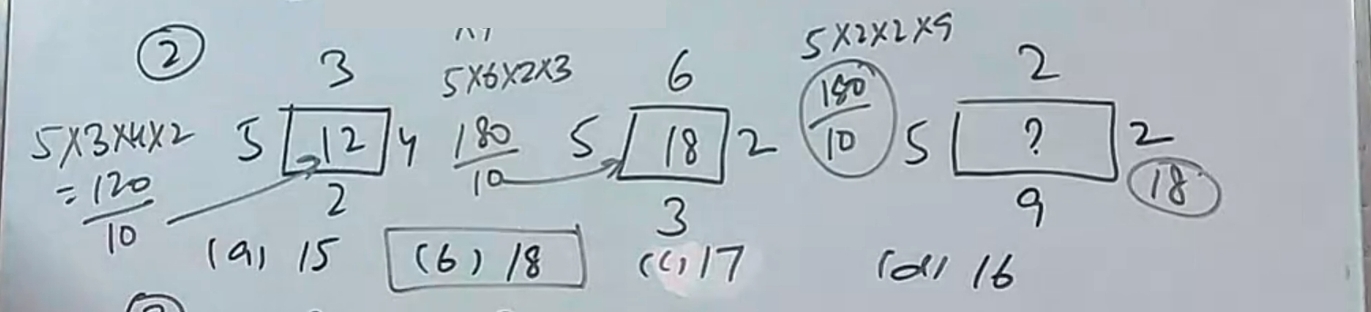 ②
3
5 12 4
2
5×3×4×2
=120/10
5×6×2×3
180/10
6
5 18 2
3
5×2×2×9
180/10
2
5 ? 2
9
18
(a) 15 (b) 18 (c) 17 (d) 16